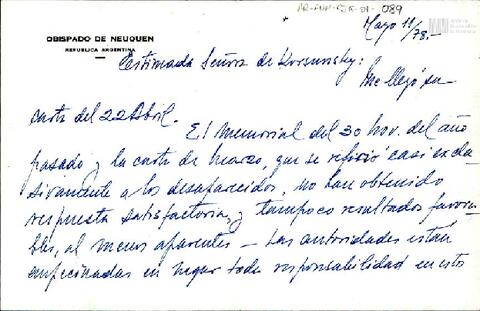 AR-ANM-
089
OBISPADO DE NEUQUEN
REPUBLICA ARGENTINA
Mayo 11/78.-
Estimada Señora de Korsunsky:
Me llegó su
carta del 22 Abril. El Memorial del 30 nov. del año
pasado y la carta de marzo, que se refirió casi exclu
sivamente a los desaparecidos, no han obtenido
respuesta satisfactoria, y tampoco resultados favora-
bles, al menos aparentes - Las autoridades están
empecinadas en negar toda responsabilidad en esto